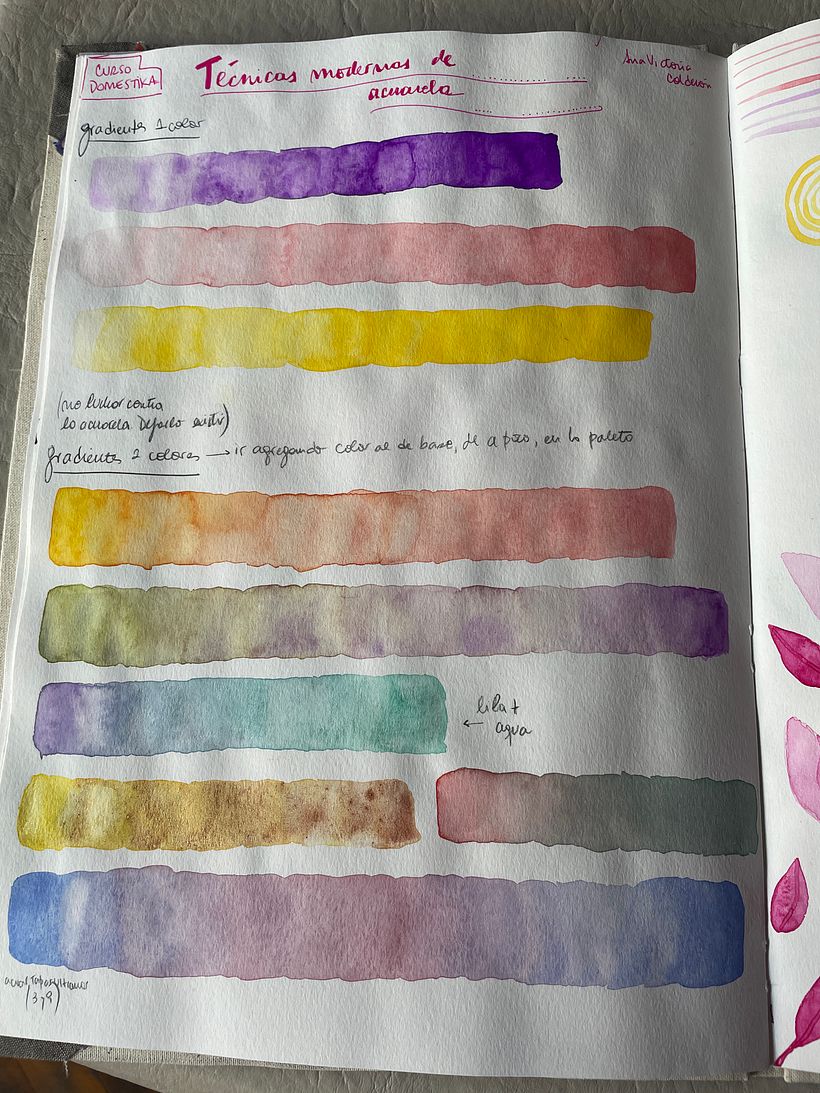 CURSO
DOMESTIKA
Técnicas modernas de
acuarela
Ana Victoria
Calderón
gradientes 1 color
(no luchar contra
la acuarela Dejarlo existir)
gradientes 2 colores → ir agregando color al de base, de a poco, en la paleta
← lila +
agua
(3 y 9)